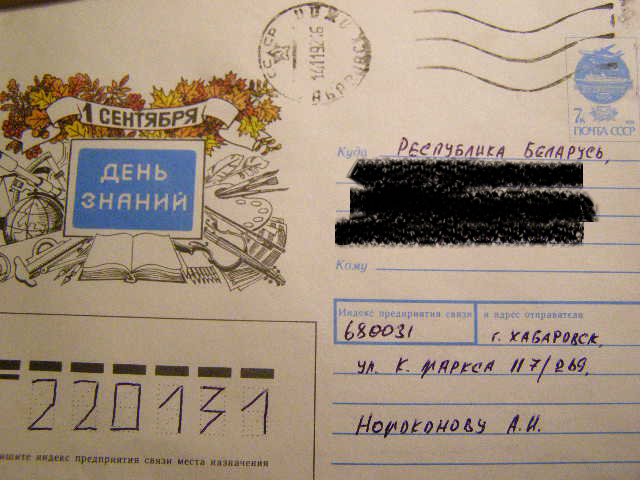 1 СЕНТЯБРЯ
ДЕНЬ
ЗНАНИЙ
СССР
14 11 92 16
7к
ПОЧТА СССР
Куда РЕСПУБЛИКА БЕЛАРУСЬ,
Кому
Индекс предприятия связи и адрес отправителя
680031 г. ХАБАРОВСК,
ул. К. МАРКСА 117/
НОРОКОНОВУ А.И.
220131
пишите индекс предприятия связи места назначения